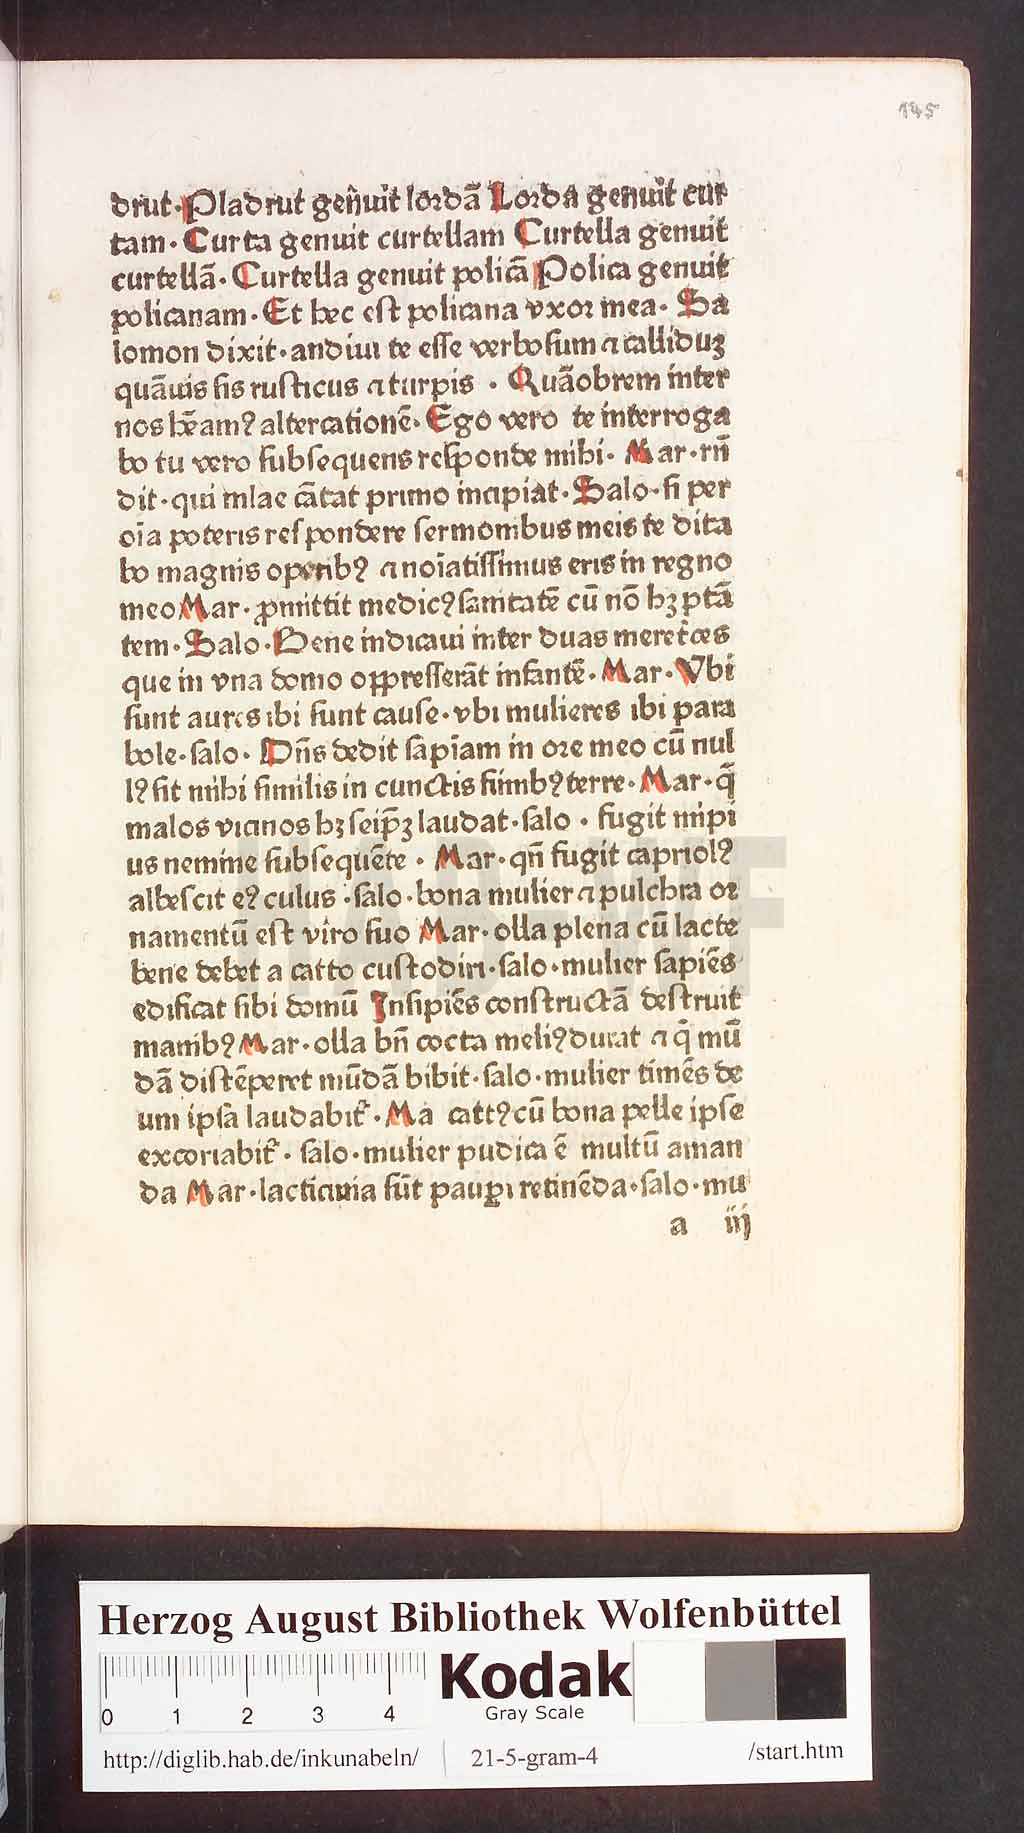 145
drut·Pladrut gen̄uit lordā Lorda genuit cur
tam·Curta genuit curtellam Curtella genuit
curtellā·Curtella genuit policā Polica genuit
policanam·Et hec est policana vxor mea·Sa
lomon dixit·andiui te esse verbosum ⁊ calliduꝫ
quāuis sis rusticus ⁊ turpis · Quāobrem inter
nos hēamꝰ altercationē·Ego vero te interroga
bo tu vero subsequens responde mihi·Mar·rn̄
dit·qui mlae cātat primo incipiat·Salo·si per
oīa poteris respondere sermonibus meis te dita
bo magnis operibꝰ ⁊ noīatissimus eris in regno
meo Mar·ꝓmittit medicꝰ sanitatē cū nō hꝫ ptā
tem·Salo·Bene indicaui inter duas meretͥces
que in vna domo oppresserāt infantē·Mar·Vbi
sunt aures ibi sunt cause·vbi mulieres ibi para
bole·salo·Dn̄s dedit sapīam in ore meo cū nul
lꝰ sit mihi similis in cunctis finibꝰ terre·Mar·q̄
malos vicinos hꝫ seip̄ꝫ laudat·salo·fugit mīpi
us nemine subsequēte·Mar·qn̄ fugit capriolꝰ
albescit eꝰ culus·salo·bona mulier ⁊ pulchra or
namentū est viro suo Mar·olla plena cū lacte
bene debet a catto custodiri·salo·mulier sapiēs
edificat sibi domū Insipiēs constructā destruit
manibꝰ Mar·olla bn̄ cocta meliꝰ durat ⁊ q̄ mū
dā distēperet mūdā bibit·salo·mulier timēs de
um ipsa laudabit᷑·Ma cattꝰ cū bona pelle ipse
excoriabit᷑·salo·mulier pudica ē multū aman
da Mar·lacticinia sūt pauꝑi retinēda·salo·mu
a iij
HAB-WF
Herzog August Bibliothek Wolfenbüttel
0 1 2 3 4
Kodak
Gray Scale
http://diglib.hab.de/inkunabeln/ 21-5-gram-4 /start.htm